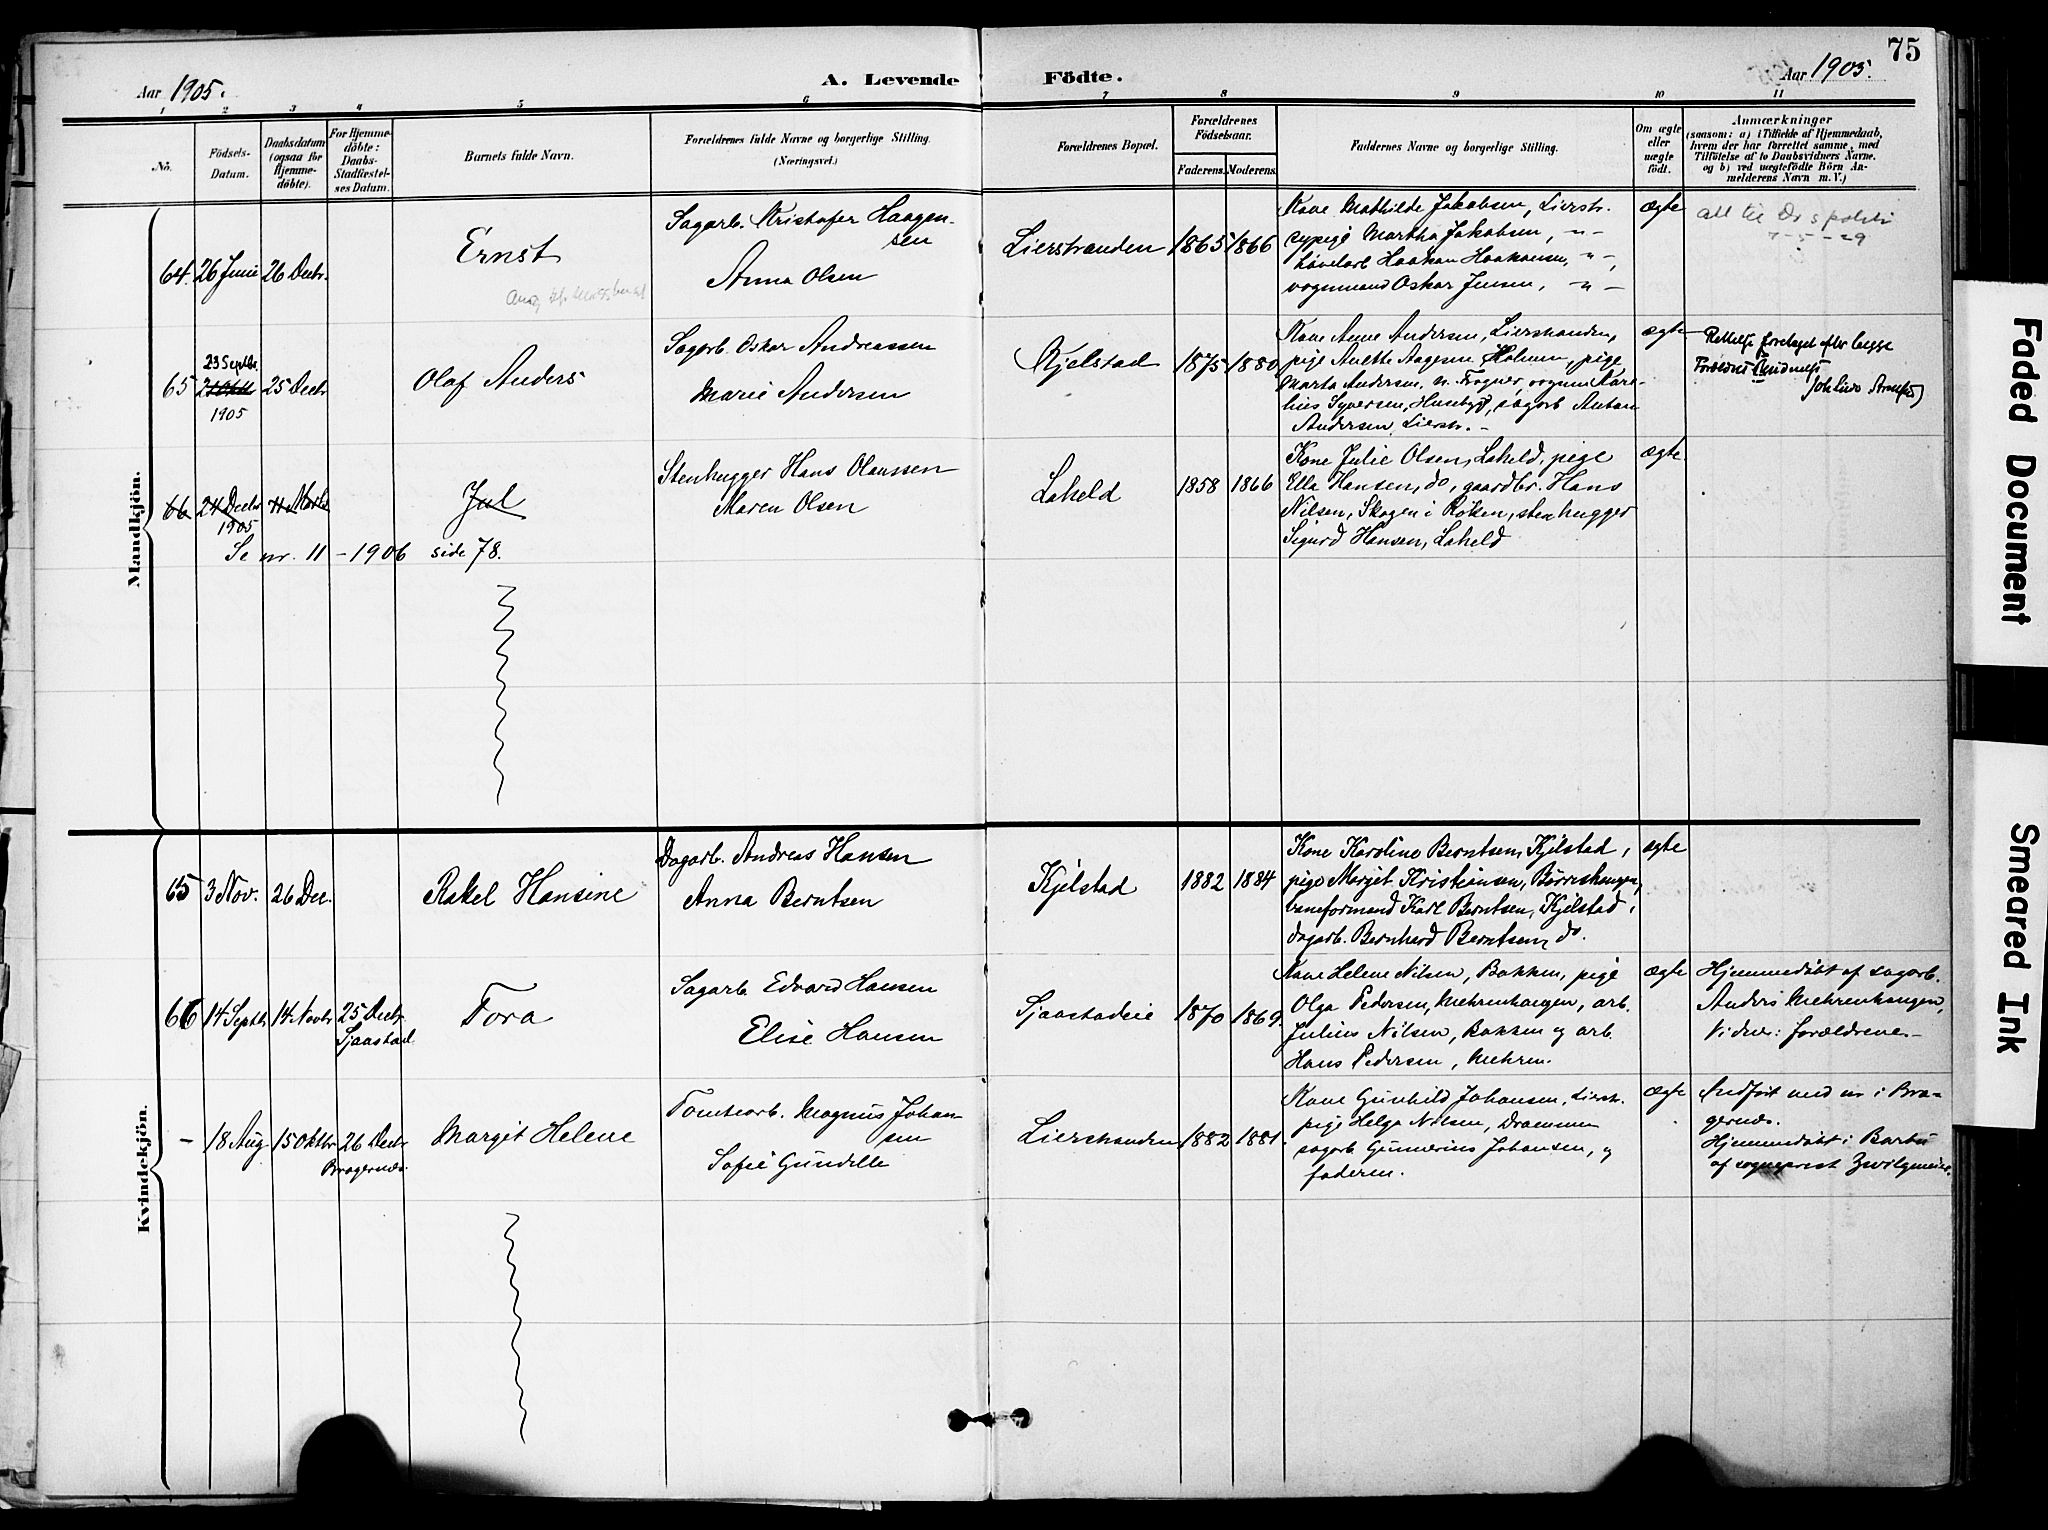 75
Aar 1905.
A. Levende Födte.
Aar 1905.
1 2 3 4 5 6 7 8 9 10 11
No.
Födsels-
Datum.
Daabsdatum
(ogsaa for
Hjemme-
döbte).
For Hjemme-
döbte:
Daabs-
Stadfæstel-
ses Datum.
Barnets fulde Navn.
Forældrenes fulde Navne og borgerlige Stilling.
(Næringsvei.)
Forældrenes Bopæl.
Forældrenes
Födselsaar.
Faderens. Moderens.
Faddernes Navne og borgerlige Stilling.
Om ægte
eller
uægte
födt.
Anmærkninger
(saasom: a) i Tilfælde af Hjemmedaab,
hvem der har forrettet samme, med
Tilföielse af to Daabsvidners Navne.
og b) ved uægtefödte Börn An-
melderens Navn m. V.)
Mandkjön.
64. 26 Juni 26 Decbr.
Ernst
Sagarb. Kristofer Haagen-
sen
Anna Olsen
Lierstranden 1865 1866
Kone Mathilde Jakobsen, Lierstr.
sypige Martha Jakobsen, -"-
høvelarb Haakon Haakonsen, -"-,
vognmand Oskar Jensen, -"-
ægte
att til Dr s politi
7-5-29
65 23 Septbr.
1905
25 Decbr
Olaf Anders
Sagarb. Oskar Andreassen
Marie Andersen
Kjelstad 1875 1880
Kone Anne Andersen, Lierstranden,
pige Anette Aagesen, Holmen, pige
Marta Andersen, n. Frogner, vognm Kare-
lius Syversen, Huseby, sagarb Anton
Andersen, Lierstr. -
ægte
Rettelse foretaget efter begge
66 24 Decbr 11 Marts
1905
Jul
Stenhugger Hans Olaussen
Maren Olsen
Laheld 1858 1866
Kone Julie Olsen, Laheld, pige
Ella Hansen, do, gaardbr. Hans
Nilsen, Skogen i Röken, stenhugger
Sigurd Hansen, Laheld
ægte.
Se nr. 11 - 1906 side 78.
Kvindekjön.
65 3 Nov. 26 Dec.
Rakel Hansine
Dagarb. Andreas Hansen
Anna Berntsen
Kjelstad 1882 1884
Kone Karoline Berntsen, Kjelstad,
pige Margit Kristiansen, Børreshaugen,
baneformand Karl Berntsen, Kjelstad,
dagarb. Bernhard Berntsen, do.
ægte
66 14 Septbr 14 Novbr 25 Decbr
Sjaastad
Tora
Sagarb. Edvard Hansen
Elise Hansen
Sjaastadeie 1870 1869.
Kone Helene Nilsen, Bakken, pige
Olga Pedersen, Mehrenhaugen, arb.
Julius Nilsen, Bakken og arb.
Hans Pedersen, Mehren.
ægte
Hjemmedøbt af sagarb.
Anders Mehrenhaugen,
Vidner: forældrene -
- 18 Aug 15 Oktbr 26 Decbr
Bragernæs.
Margit Helene
Tomtearb. Magnus Johan-
sen
Sofie Gundille
Lierstranden 1882 1881.
Kone Gunhild Johansen, Lierstr.
pige Helga Nilsen, Drammen
sagarb Gunnerius Johansen, og
faderen.
ægte
Indført med nr i Bra-
gernæs.
Hjemmedøbt i Barbu
af sogneprest Zwilgmeier.
Faded Document
Smeared Ink